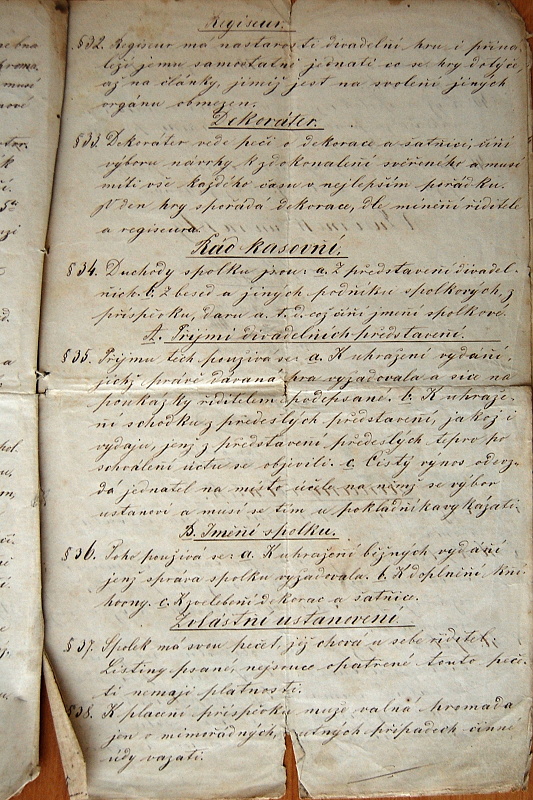 Regiseur.
§32. Regiseur má na starosti divadelní hru i přiná-
leží jemu samostatně jednati co se hry dotýče
až na články, jimiž jest na svolení jiných
orgánu obmezen.
Dekoratér.
§33. Dekoratér vede péči o dekorace a šatnici, činí
výboru návrhy k zdokonalení svěřeného a musí
míti vše každého času v nejlepším pořádku.
V den hry spořádá dekorace, dle mínění ředitele
a regiseura.
Řád kasovní.
§34. Duchody spolku jsou: a. Z představení divadel-
ních. b. Z besed a jiných podniku spolkových, z
příspěvku, daru a. t. d. což činí jmění spolkové.
A. Příjmi divadelních představení.
§35. Příjmu těch používá se: a. K uhražení vydání,
jichž právě dávaná hra vyžadovala a sice na
poukázky ředitelem podepsané. b. K uhraže-
ní schodku z předešlých představení, jakož i
vydaju, jenž z představení předešlých teprv po
schválení účtu se objevili. c. Čistý výnos odevz-
dá jednatel na místo účele na němž se výbor
ustanoví a musí se tím u pokladníka vykázati.
B. Jmění spolku.
§36. Toho používá se: a. K uhražení běžných vydání
jenž správa spolku vyžadovala. b. K doplnění kni-
hovny. c. K zvelebení dekorac a šatnice.
Zvláštní ustanovení.
§37. Spolek má svou pečeť, již chová u sebe ředitel.
Listiny psané, nejsouce opatřené touto peče-
tí nemají platnosti.
§38. K placení příspěvku muže valná hromada
jen v mimořádných, nutných případech činné
údy vázati.